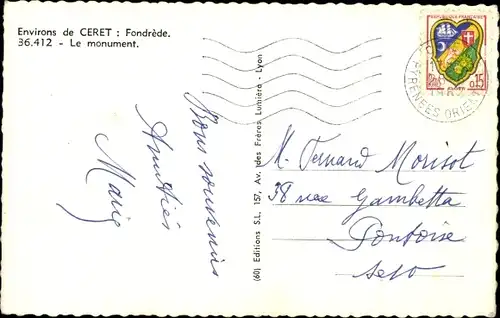 Environs de CERET : Fondrède.
36.412 - Le monument.
Bons souvenirs
Amitiés
(60) Editions S.L. 157, Av. des Frères Lumière - Lyon
REPUBLIQUE FRANÇAISE
0,15
PYRÉNÉES ORIEN
M. Fernand Morisot
38 rue Gambetta
Pontoise